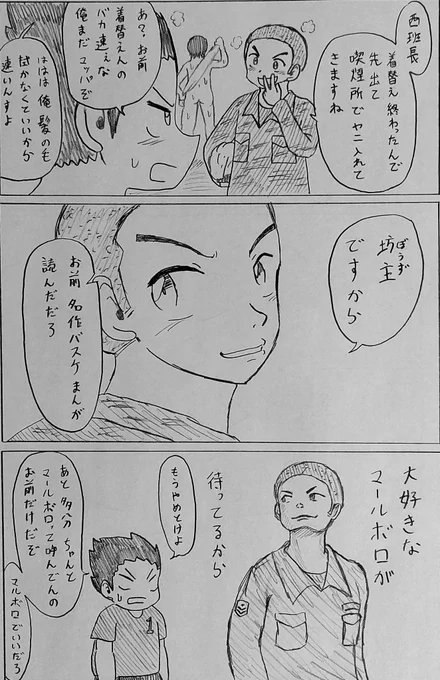 西班長
着替え終わったんで
先出て
喫煙所でヤニ入れて
きますね
あ?お前
着替えんの
バカ速えな
俺まだマッパだぞ
ははは俺髪の毛
拭かなくていいから
速いんすよ
坊主
ぼうず
ですから
お前名作バスケまんが
読んだだろ
大好きな
マールボロが
待ってるから
もうやめとけよ
あと多分ちゃんと
マールボロって呼んでんの
お前だけだぞ
マルボロでいいだろ
1